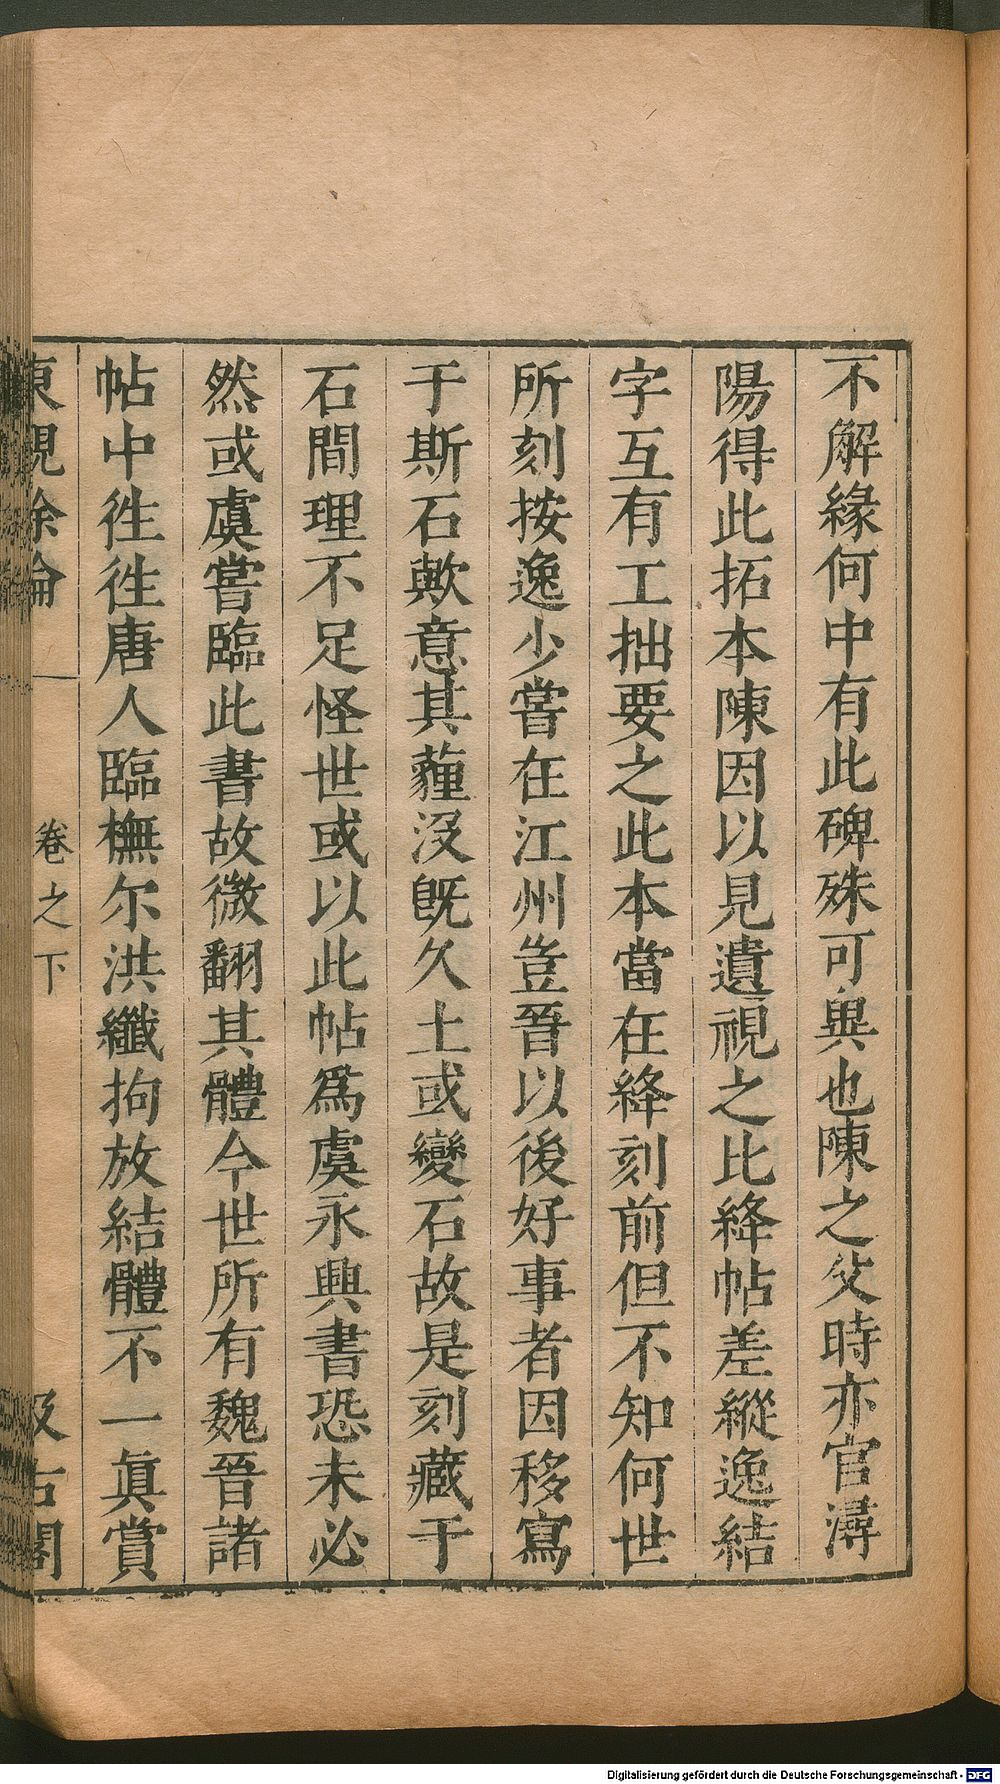 不解緣何中有此碑殊可異也陳之父時亦官潯
陽得此拓本陳因以見遺視之比絳帖差縱逸結
字互有工拙要之此本當在絳刻前但不知何世
所刻按逸少嘗在江州豈晉以後好事者因移寫
于斯石歟意其薶沒旣久土或變石故是刻藏于
石間理不足怪世或以此帖爲虞永興書恐未必
然或虞嘗臨此書故微翻其體今世所有魏晉諸
帖中徃徃唐人臨橅尔洪纖拘放結體不一眞賞
東觀餘論
卷之下
汲古閣
Digitalisierung gefördert durch die Deutsche Forschungsgemeinschaft - DFG